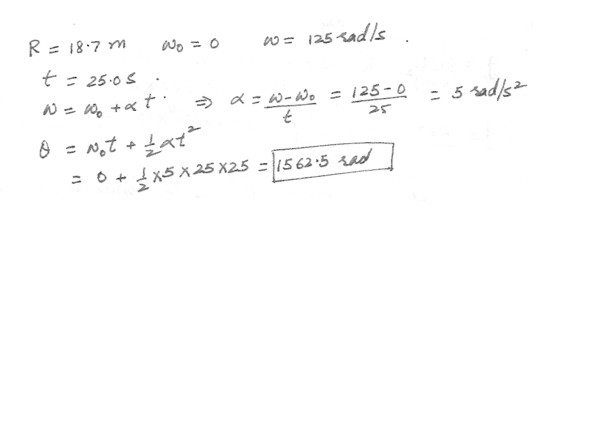 R = 18.7 m ω₀ = 0 ω = 125 rad/s .
t = 25.0 s .
ω = ω₀ + αt . ⇒ α = (ω-ω₀)/t = (125-0)/25 = 5 rad/s²
θ = ω₀t + ½αt²
= 0 + ½ × 5 × 25 × 25 = 1562.5 rad